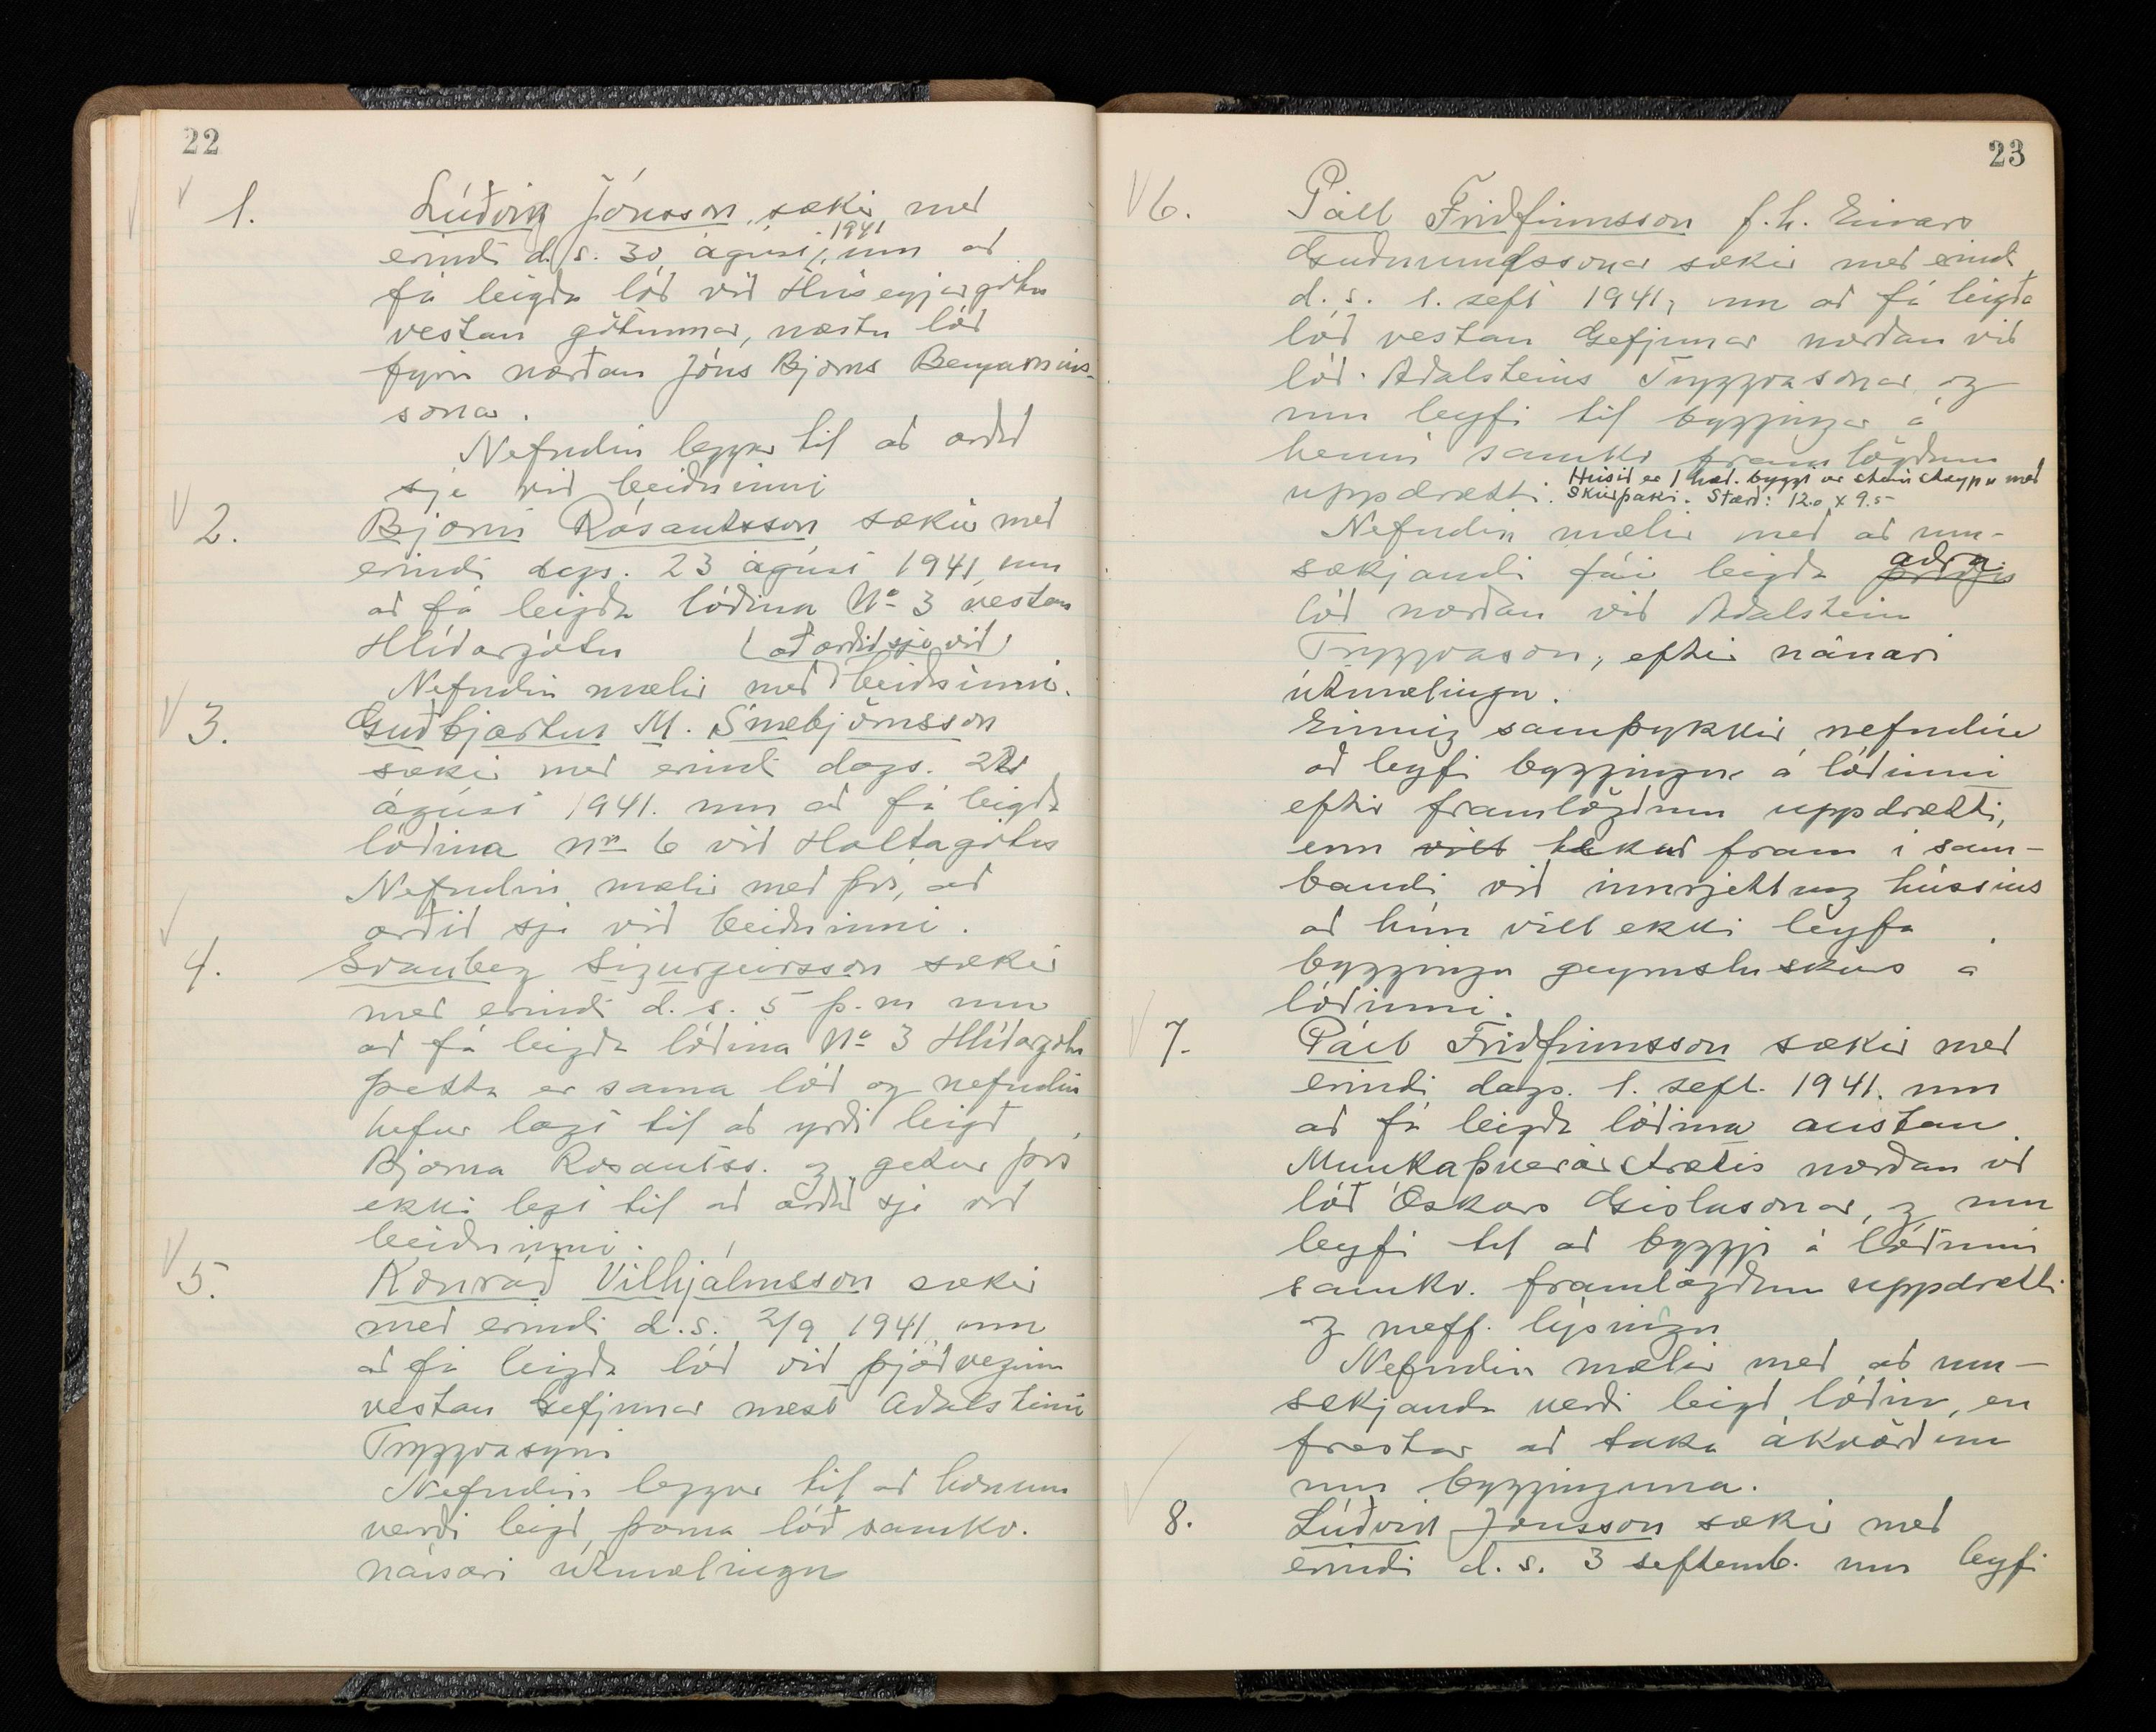 22
1. Lúðvík Jónsson sækir með
erindi d.s. 30 ágúst 1941, um að
fá leigða lóð við Húseyjargötu
vestan götunnar, næstu lóð
fyrir norðan Jóns Bjorns Benjamíns-
sonar.
Nefndin leggur til að orðið
sje við beiðninni
2. Bjarni Rósantsson sækir með
erindi dags. 23 ágúst 1941 um
að fá leigða lóðina No 3 vestan
Hlíðargötu
Nefndin mælir með að orðið sje við beiðninni.
3. Guðbjartur M. Snæbjörnsson
sækir með erindi dags. 22
ágúst 1941. um að fá leigða
lóðina nr 6 við Holtagötu
Nefndin mælir með því, að
orðið sje við beiðninni.
4. Svanberg Sigurgeirsson sækir
með erindi d.s. 5 þ.m um
að fá leigða lóðina No 3 Hlíðargötu
þetta er sama lóð og nefndin
hefur lagt til að yrði leigð
Bjarna Rósantss. og getur því
ekki lagt til að orðið sje við
beiðninni.
5. Konráð Vilhjálmsson sækir
með erindi d.s. 2/9 1941 um
að fá leigða lóð við þjóðveginn
vestan Gefjunar næst Aðalsteini
Tryggvasyni
Nefndin leggur til að honum
verði leigð þarna lóð samkv.
nánari útmælingu
23
6. Páll Friðfinnsson f.h. Einars
Guðmundssonar sækir með erindi
d.s. 1. sept 1941, um að fá leigða
lóð vestan Gefjunar norðan við
lóð Aðalsteins Tryggvasonar og
um leyfi til byggingar á
henni samkv framlögðum
uppdrætti. Húsið er 1 hæð. byggt úr steinsteypu með
skúrþaki. Stærð: 12.0 x 9.5
Nefndin mælir með að um-
sækjandi fái leigða aðra
lóð norðan við Aðalstein
Tryggvason, eftir nánari
útmælingu.
Einnig samþykkir nefndin
að leyfi byggingu á lóðinni
eftir framlögðum uppdrætti,
enn vill tekur fram í sam-
bandi við innrjetting hússins
að hún vill ekki leyfa
byggingu geymsluskúrs á
lóðinni.
7. Páll Friðfinnsson sækir með
erindi dags. 1. sept. 1941. um
að fá leigða lóðina austan
Munkaþverárstrætis norðan við
lóð Óskars Gíslasonar, og um
leyfi til að byggja á lóðinni
samkv. framlögðum uppdrætti
og meðf. lýsingu
Nefndin mælir með að um-
sækjanda verði leigð lóðin, en
frestar að taka ákvörðun
um bygginguna.
8. Lúðvík Jónsson sækir með
erindi d.s. 3 septemb. um leyfi